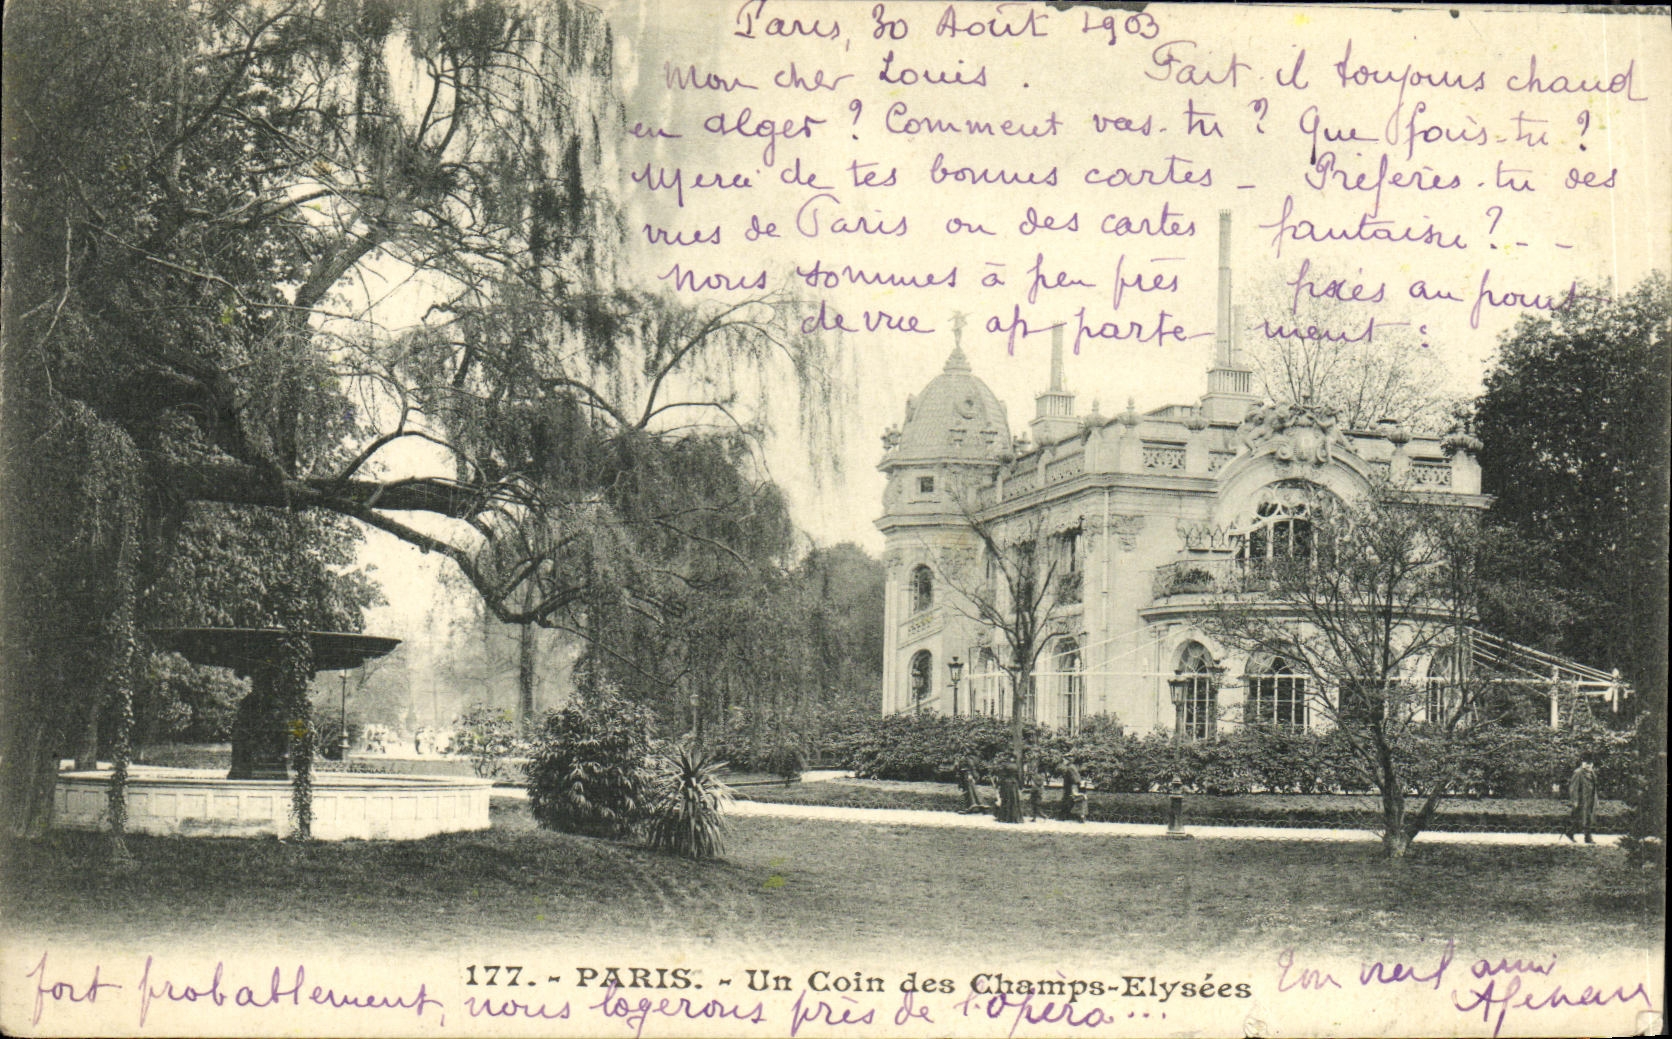 Paris, 30 Août 1903
Mon cher Louis. Fait-il toujours chaud
en Alger ? Comment vas-tu ? Que fais-tu ?
Merci de tes bonnes cartes - Préfères-tu des
vues de Paris ou des cartes fantaisie ? - -
Nous sommes à peu près fixés au point
de vue appartement :
fort probablement, nous logerons près de l'Opéra...
177. - PARIS. - Un Coin des Champs-Elysées
Ton vieil ami